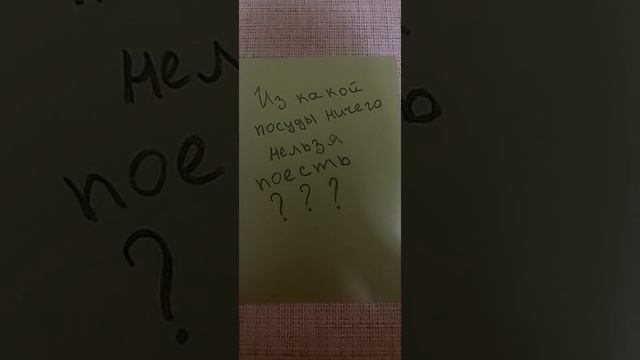 Из какой
посуды ничего
нельзя
поесть
? ? ?